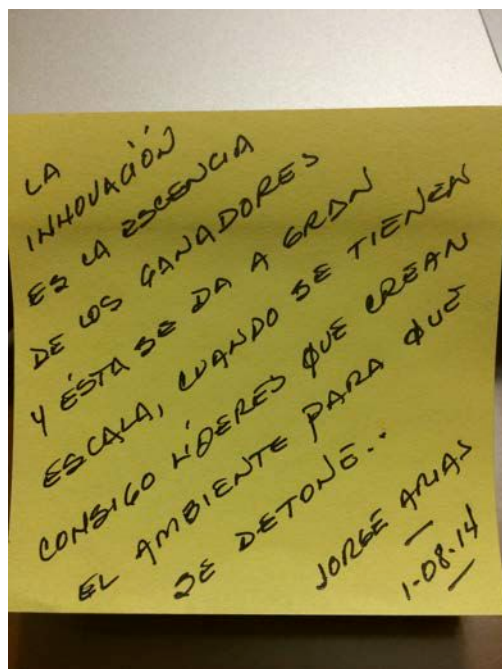 LA
INNOVACIÓN
ES LA ESCENCIA
DE LOS GANADORES
Y ÉSTA SE DA A GRAN
ESCALA, CUANDO SE TIENEN
CONSIGO LÍDERES QUE CREAN
EL AMBIENTE PARA QUE
SE DETONE..
JORGE ARIAS
1-08-14